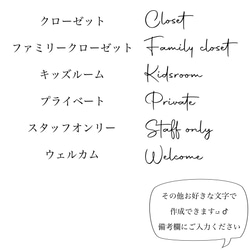 クローゼット Closet
ファミリークローゼット Family closet
キッズルーム Kidsroom
プライベート Private
スタッフオンリー Staff only
ウェルカム Welcome
その他お好きな文字で
作成できます♂
備考欄にご入力ください